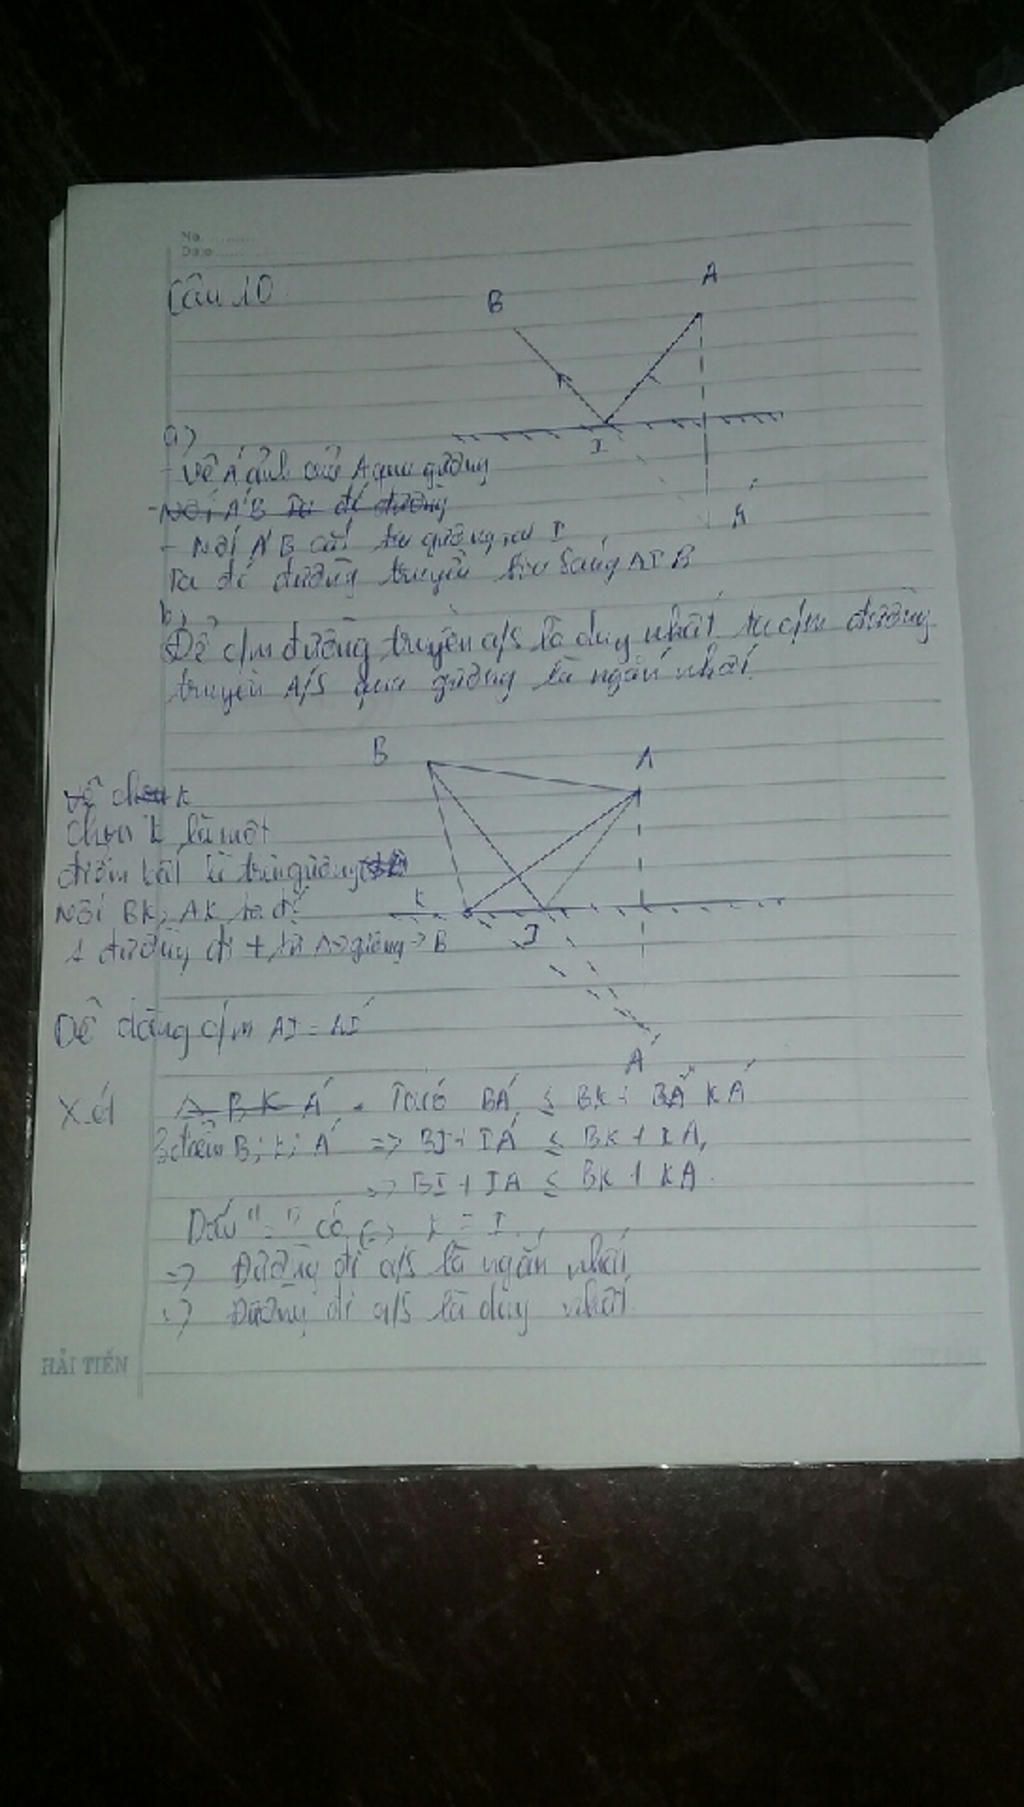 No.............
Date...................
Câu 10
B
A
I
A'
a)
- Vẽ A' ảnh của A qua gương
- Nối A'B Ta đc đường
- Nối A'B cắt tại gương tại I
Ta đc đường truyền tia sáng AIB
b)
Để c/m đường truyền a/s là duy nhất ta c/m đường
truyền A/S qua gương là ngắn nhất.
B
A
Vẽ chọn K
Chọn K là một
điểm bất kì trên gương
Nối BK; AK ta đc
K
I
1 đường đi từ A → gương → B
A'
Dễ dàng c/m AI = A'I
Xét Δ BKA' . Ta có BA' ≤ BK + BA' KA'
3 điểm B; K; A' => BI + IA' ≤ BK + KA,
=> BI + IA ≤ BK + KA.
Dấu "=" có <=> K ≡ I
=> Đường đi a/s là ngắn nhất
=> Đường đi a/s là duy nhất.
HẢI TIẾN